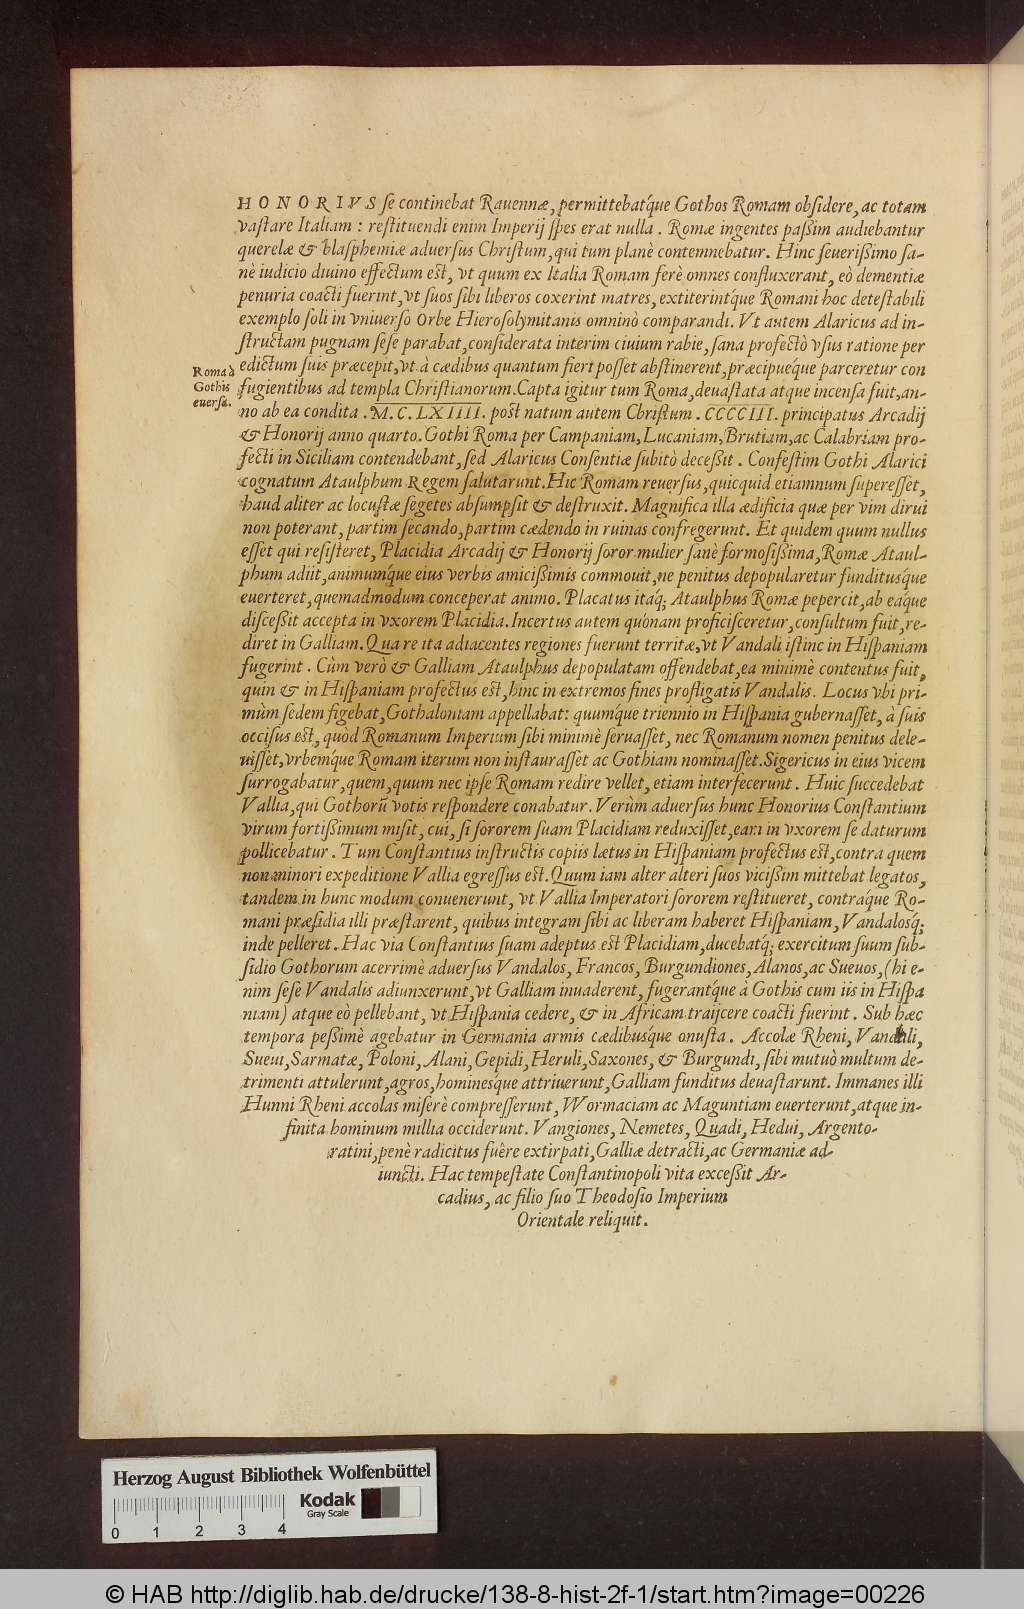 HONORIVS se continebat Rauennæ, permittebatq́ue Gothos Romam obsidere, ac totam
vastare Italiam : restituendi enim Imperij spes erat nulla . Romæ ingentes paßim audiebantur
querelæ & blasphemiæ aduersus Christum, qui tum planè contemnebatur . Hinc seuerißimo sa-
nè iudicio diuino effectum est, vt quum ex Italia Romam ferè omnes confluxerant, eò dementiæ
penuria coacti fuerint, vt suos sibi liberos coxerint matres, extiterintq́ue Romani hoc detestabili
exemplo soli in vniuerso Orbe Hierosolymitanis omninò comparandi. Vt autem Alaricus ad in-
structam pugnam sese parabat, considerata interim ciuium rabie, sana profectò vsus ratione per
edictum suis præcepit, vt à cædibus quantum fieri posset abstinerent, præcipueq́ue parceretur con
Roma à
Gothis
euersa.
fugientibus ad templa Christianorum. Capta igitur tum Roma, deuastata atque incensa fuit, an-
no ab ea condita . M. C. LXIIII. post natum autem Christum . CCCCIII. principatus Arcadij
& Honorij anno quarto. Gothi Roma per Campaniam, Lucaniam, Brutiam, ac Calabriam pro-
fecti in Siciliam contendebant, sed Alaricus Consentiæ subitò deceßit . Confestim Gothi Alarici
cognatum Ataulphum Regem salutarunt. Hic Romam reuersus, quicquid etiamnum superesset,
haud aliter ac locustæ segetes absumpsit & destruxit. Magnifica illa ædificia quæ per vim dirui
non poterant, partim secando, partim cædendo in ruinas confregerunt. Et quidem quum nullus
esset qui resisteret, Placidia Arcadij & Honorij soror mulier sanè formosißima, Romæ Ataul-
phum adiit, animumq́ue eius verbis amicißimis commouit, ne penitus depopularetur funditusq́ue
euerteret, quemadmodum conceperat animo. Placatus itaq́; Ataulphus Romæ pepercit, ab eaq́ue
discessit accepta in vxorem Placidia. Incertus autem quònam proficisceretur, consultum fuit, re-
diret in Galliam. Qua re ita adiacentes regiones fuerunt territæ, vt Vandali istinc in Hispaniam
fugerint . Cùm verò & Galliam Ataulphus depopulatam offendebat, ea minimè contentus fuit,
quin & in Hispaniam profectus est, hinc in extremos fines profligatis Vandalis. Locus vbi pri-
mùm sedem figebat, Gothaloniam appellabat: quumq́ue triennio in Hispania gubernasset, à suis
occisus est, quòd Romanum Imperium sibi minimè seruasset, nec Romanum nomen penitus dele-
uisset, vrbemq́ue Romam iterum non instaurasset ac Gothiam nominasset. Sigericus in eius vicem
surrogabatur, quem, quum nec ipse Romam redire vellet, etiam interfecerunt . Huic succedebat
Vallia, qui Gothorũ votis respondere conabatur. Verùm aduersus hunc Honorius Constantium
virum fortißimum misit, cui, si sororem suam Placidiam reduxisset, eam in vxorem se daturum
pollicebatur . Tum Constantius instructis copiis lætus in Hispaniam profectus est, contra quem
non minori expeditione Vallia egressus est. Quum iam alter alteri suos vicißim mittebat legatos,
tandem in hunc modum conuenerunt, vt Vallia Imperatori sororem restitueret, contraq́ue Ro-
mani præsidia illi præstarent, quibus integram sibi ac liberam haberet Hispaniam, Vandalosq́;
inde pelleret. Hac via Constantius suam adeptus est Placidiam, ducebatq́; exercitum suum sub-
sidio Gothorum acerrimè aduersus Vandalos, Francos, Burgundiones, Alanos, ac Sueuos, (hi e-
nim sese Vandalis adiunxerunt, vt Galliam inuaderent, fugerantq́ue à Gothis cum iis in Hispa
niam) atque eò pellebant, vt Hispania cedere, & in Africam traijcere coacti fuerint . Sub hæc
tempora peßimè agebatur in Germania armis cædibusq́ue onusta . Accolæ Rheni, Vandali,
Sueui, Sarmatæ, Poloni, Alani, Gepidi, Heruli, Saxones, & Burgundi, sibi mutuò multum de-
trimenti attulerunt, agros, hominesq́ue attriuerunt, Galliam funditus deuastarunt. Immanes illi
Hunni Rheni accolas miserè compresserunt, Wormaciam ac Maguntiam euerterunt, atque in-
finita hominum millia occiderunt. Vangiones, Nemetes, Quadi, Hedui, Argento-
ratini, penè radicitus fuêre extirpati, Galliæ detracti, ac Germaniæ ad-
iuncti. Hac tempestate Constantinopoli vita exceßit Ar-
cadius, ac filio suo Theodosio Imperium
Orientale reliquit.
Herzog August Bibliothek Wolfenbüttel
Kodak
Gray Scale
0 1 2 3 4
© HAB http://diglib.hab.de/drucke/138-8-hist-2f-1/start.htm?image=00226